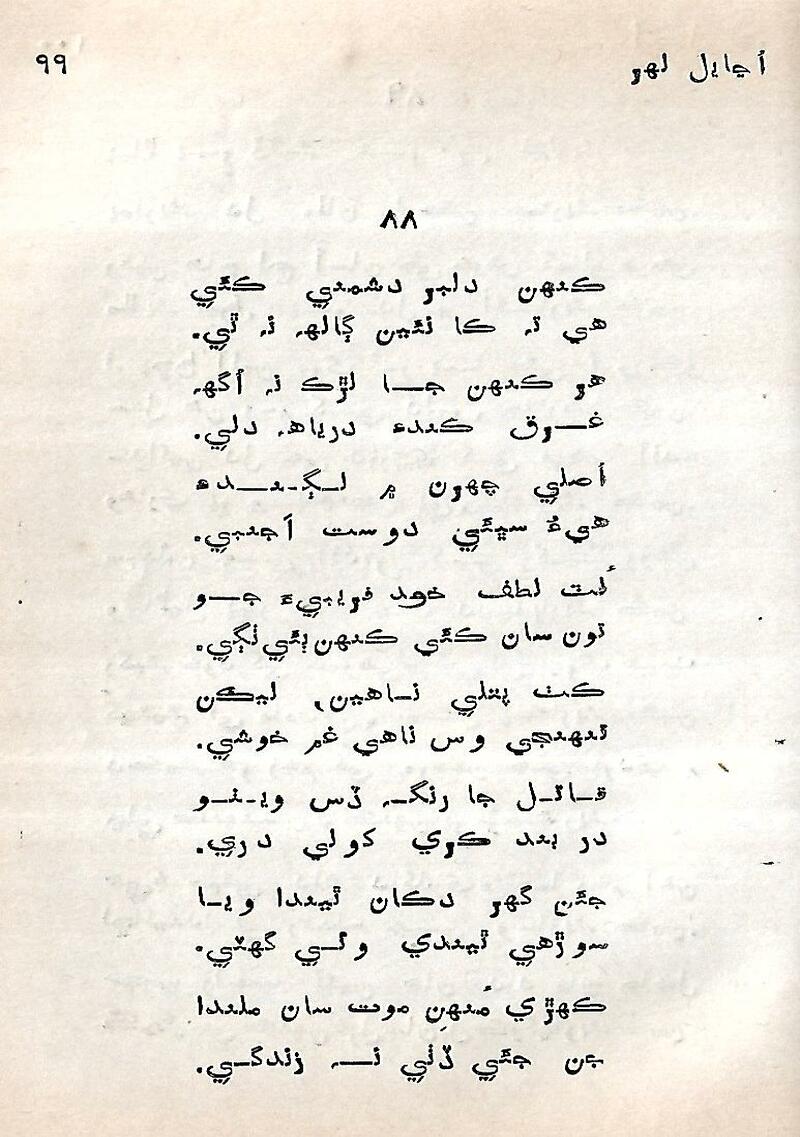 اڃايل لهر
۹۹
۸۸
ڪنهن دلبر دشمني ڪئي
هي تہ ڪا نئين ڳالهہ نہ ٿي.
هر ڪنهن جا لڙڪ نہ اُگهہ
غرق ڪندءِ درياهہ دلي.
اصلي چهرن ۾ لڳندءِ
هيءُ سڀئي دوست اجنبي.
لُٽ لطف خود فريبيءَ جو
تون سان ڪئي ڪنهن ٻئي ٺڳي.
ڪٺ پتلي ناهين، ليڪن
تنهنجي وس ناهي غم خوشي.
قاتل جا رنگہ ڏس ويٺو
در بند ڪري کولي دري.
جئن گهر دڪان ٿيندا ويا
سوڙهي ٿيندي وئي گهٽي.
ڪهڙي مُنهن موت سان ملندا
جن جئي ڏٺي نہ زندگي.